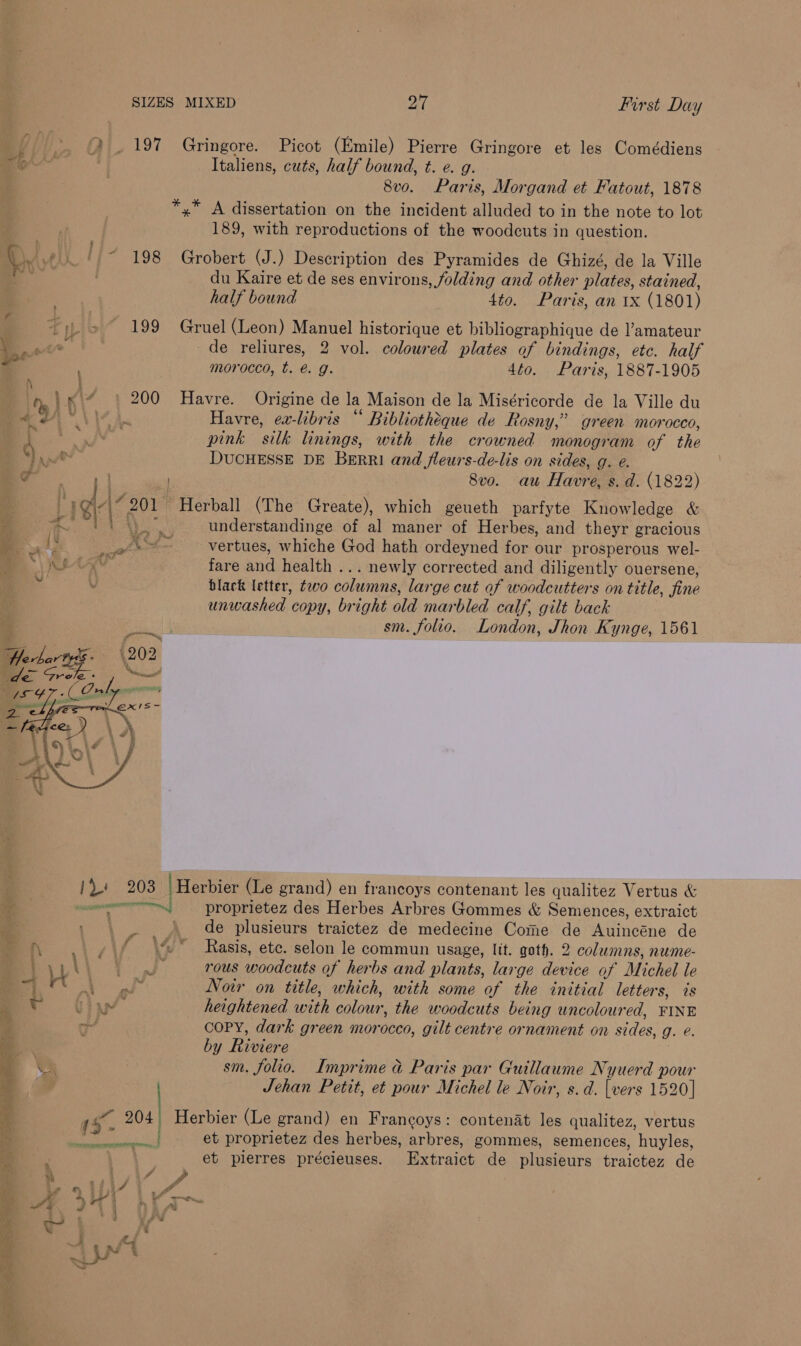 SIZES MIXED 27 First Day
197 Gringore. Picot (Émile) Pierre Gringore et les Comédiens
Italiens, cuts, half bound, t. e. g.
8vo. Paris, Morgand et Fatout, 1878
*⁎* A dissertation on the incident alluded to in the note to lot
189, with reproductions of the woodcuts in question.
198 Grobert (J.) Description des Pyramides de Ghizé, de la Ville
du Kaire et de ses environs, folding and other plates, stained,
half bound 4to. Paris, an IX (1801)
199 Gruel (Leon) Manuel historique et bibliographique de l'amateur
de reliures, 2 vol. coloured plates of bindings, etc. half
morocco, t. e. g. 4to. Paris, 1887-1905
200 Havre. Origine de la Maison de la Miséricorde de la Ville du
Havre, ex-libris “Bibliothèque de Rosny,” green morocco,
pink silk linings, with the crowned monogram of the
DUCHESSE DE BERRI and fleurs-de-lis on sides, g. e.
8vo. au Havre, s. d. (1822)
201 Herball (The Greate), which geueth parfyte Knowledge &
understandinge of al maner of Herbes, and theyr gracious
vertues, whiche God hath ordeyned for our prosperous wel-
fare and health ... newly corrected and diligently ouersene,
black letter, two columns, large cut of woodcutters on title, fine
unwashed copy, bright old marbled calf, gilt back
sm. folio. London, Jhon Kynge, 1561
202
203 Herbier (Le grand) en francoys contenant les qualitez Vertus &
proprietez des Herbes Arbres Gommes & Semences, extraict
de plusieurs traictez de medecine Come de Auincéne de
Rasis, etc. selon le commun usage, lit. goth. 2 columns, nume-
rous woodcuts of herbs and plants, large device of Michel le
Noir on title, which, with some of the initial letters, is
heightened with colour, the woodcuts being uncoloured, FINE
COPY, dark green morocco, gilt centre ornament on sides, g. e.
by Riviere
sm. folio. Imprime à Paris par Guillaume Nyuerd pour
Jehan Petit, et pour Michel le Noir, s. d. [vers 1520]
204 Herbier (Le grand) en Françoys: contenāt les qualitez, vertus
et proprietez des herbes, arbres, gommes, semences, huyles,
et pierres précieuses. Extraict de plusieurs traictez de